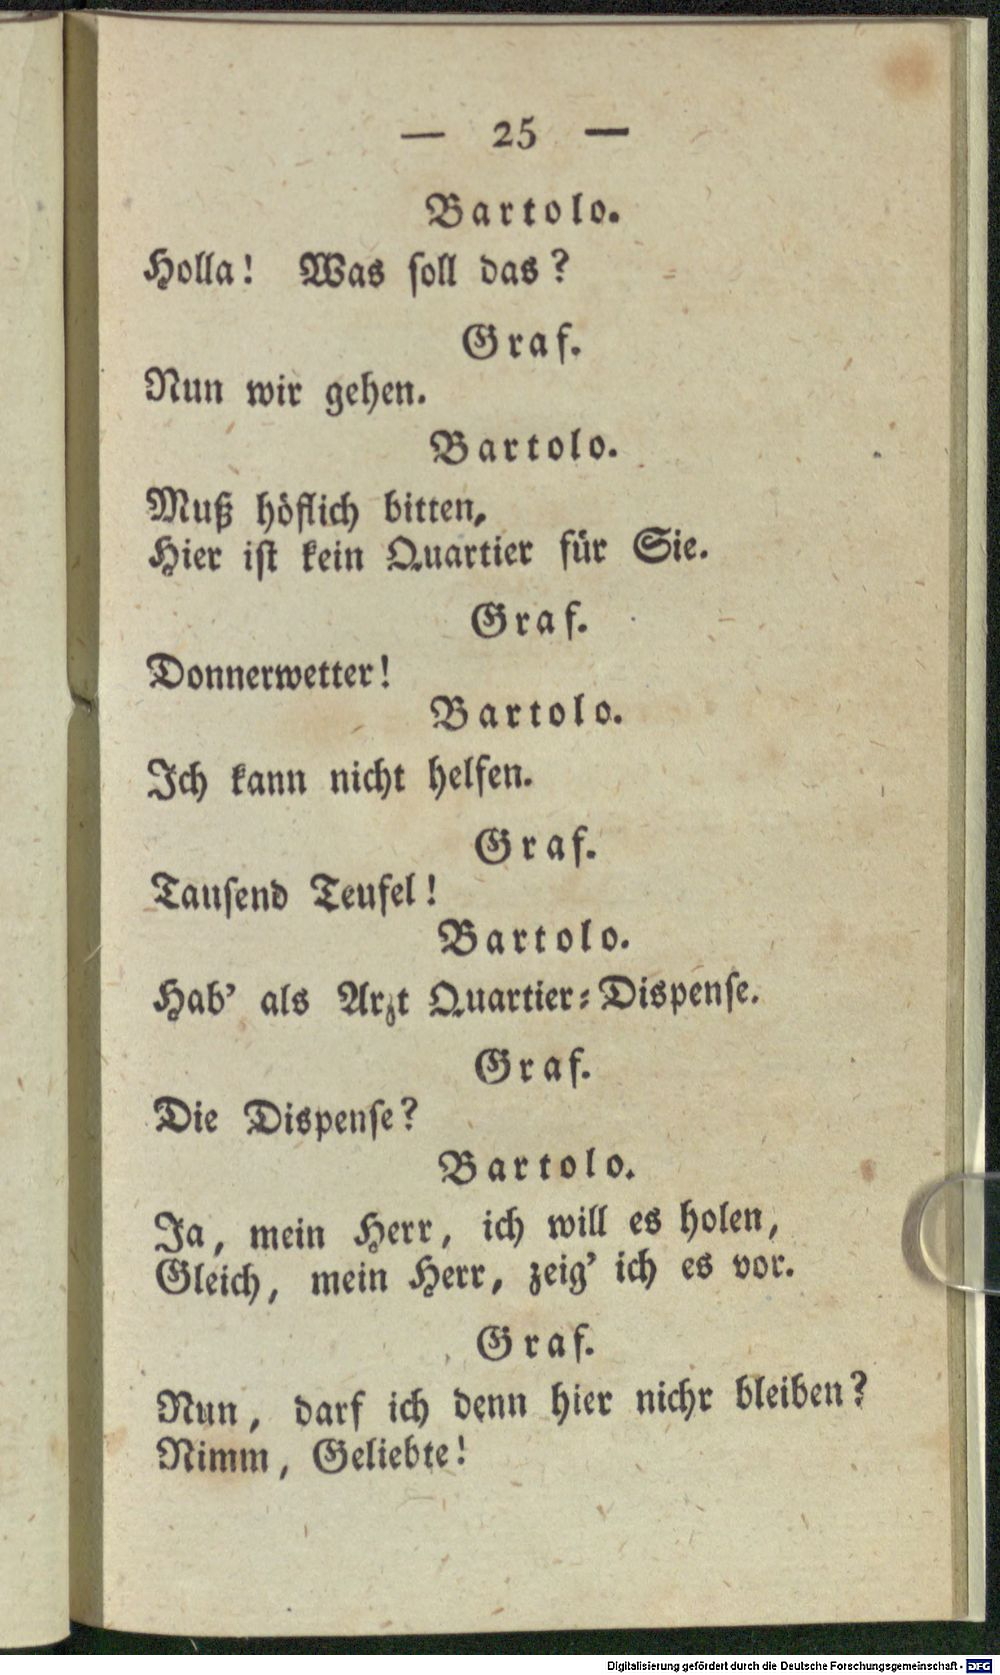 — 25 —
Bartolo.
Holla! Was ſoll das?
Graf.
Nun wir gehen.
Bartolo.
Muß höflich bitten,
Hier iſt kein Quartier für Sie.
Graf.
Donnerwetter!
Bartolo.
Ich kann nicht helfen.
Graf.
Tauſend Teufel!
Bartolo.
Hab' als Arzt Quartier⸗Dispenſe.
Graf.
Die Dispenſe?
Bartolo.
Ja, mein Herr, ich will es holen,
Gleich, mein Herr, zeig' ich es vor.
Graf.
Nun, darf ich denn hier nichr bleiben?
Nimm, Geliebte!
Digitalisierung gefördert durch die Deutsche Forschungsgemeinschaft - DFG